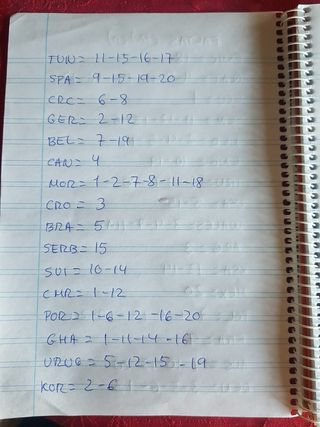 TUN= 11-15-16-17
SPA= 9-15-19-20
CRC= 6-8
GER= 2-12
BEL= 7-19
CAN= 4
MOR= 1-2-7-8-11-18
CRO= 3
BRA= 5
SERB= 15
SUI= 10-14
CMR= 1-12
POR= 1-6-12-16-20
GHA= 1-11-14-16
URUG= 5-12-15-19
KOR= 2-6